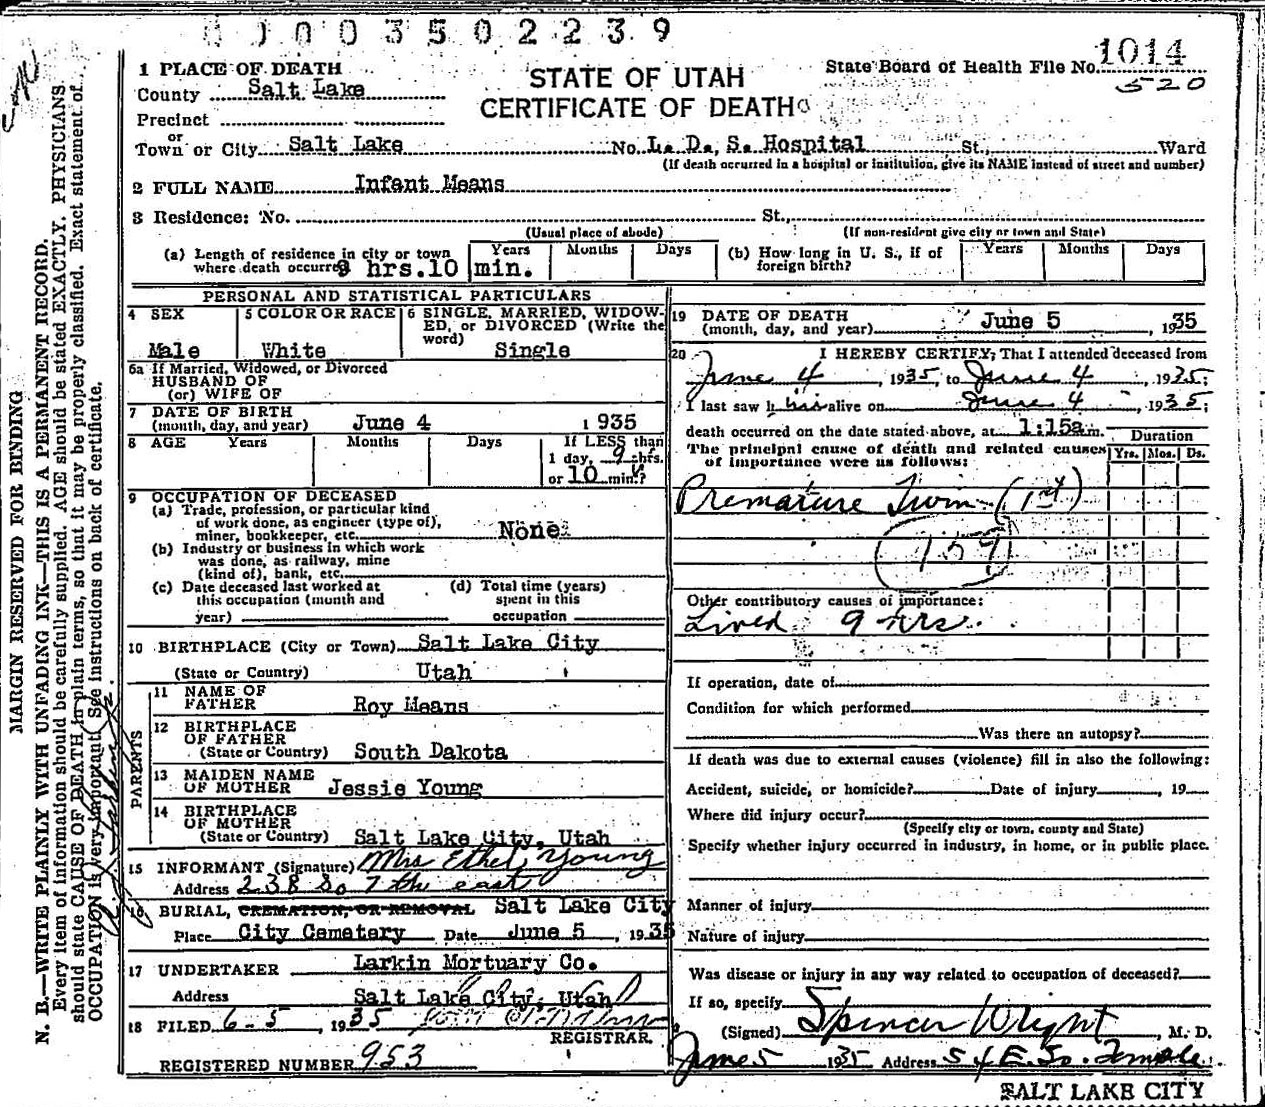 0003502239
1014
520
State Board of Health File No.
STATE OF UTAH
CERTIFICATE OF DEATH
1 PLACE OF DEATH
County Salt Lake
Precinct
or
Town or City Salt Lake No. L. D. S. Hospital St., Ward
(If death occurred in a hospital or institution, give its NAME instead of street and number)
2 FULL NAME Infant Means
3 Residence: No. St.,
(Usual place of abode) (If non-resident give city or town and State)
(a) Length of residence in city or town where death occurred 9 hrs. 10 min. Years Months Days
(b) How long in U. S., if of foreign birth? Years Months Days
PERSONAL AND STATISTICAL PARTICULARS
4 SEX Male
5 COLOR OR RACE White
6 SINGLE, MARRIED, WIDOWED, or DIVORCED (Write the word) Single
6a If Married, Widowed, or Divorced
HUSBAND OF
(or) WIFE OF
7 DATE OF BIRTH
(month, day, and year) June 4 1935
8 AGE Years Months Days If LESS than
1 day, 9 hrs.
or 10 min.?
9 OCCUPATION OF DECEASED
(a) Trade, profession, or particular kind
of work done, as engineer (type of),
miner, bookkeeper, etc. None
(b) Industry or business in which work
was done, as railway, mine
(kind of), bank, etc.
(c) Date deceased last worked at
this occupation (month and
year)
(d) Total time (years)
spent in this
occupation
10 BIRTHPLACE (City or Town) Salt Lake City
(State or Country) Utah
PARENTS
11 NAME OF FATHER Roy Means
12 BIRTHPLACE OF FATHER
(State or Country) South Dakota
13 MAIDEN NAME OF MOTHER Jessie Young
14 BIRTHPLACE OF MOTHER
(State or Country) Salt Lake City, Utah
15 INFORMANT (Signature) Mrs Ethel Young
Address 238 So 7 the east
16 BURIAL, CREMATION, OR REMOVAL Salt Lake City
Place City Cemetery Date June 5, 1935
17 UNDERTAKER Larkin Mortuary Co.
Address Salt Lake City, Utah
18 FILED 6-5, 1935
REGISTRAR.
REGISTERED NUMBER 953
19 DATE OF DEATH
(month, day, and year) June 5, 1935
20 I HEREBY CERTIFY; That I attended deceased from
June 4, 1935, to June 4, 1935;
I last saw h his alive on June 4, 1935;
death occurred on the date stated above, at 1:15a m.
The principal cause of death and related causes
of importance were as follows:
Duration
Yrs. Mos. Ds.
Premature Twin (1st)
159
Other contributory causes of importance:
Lived 9 hrs.
If operation, date of
Condition for which performed
Was there an autopsy?
If death was due to external causes (violence) fill in also the following:
Accident, suicide, or homicide? Date of injury, 19
Where did injury occur?
(Specify city or town, county and State)
Specify whether injury occurred in industry, in home, or in public place.
Manner of injury
Nature of injury
Was disease or injury in any way related to occupation of deceased?
If so, specify
(Signed) Spencer Wright, M. D.
June 5 1935 Address 54 E. So. Temple
SALT LAKE CITY
MARGIN RESERVED FOR BINDING
N. B.—WRITE PLAINLY WITH UNFADING INK—THIS IS A PERMANENT RECORD.
Every item of information should be carefully supplied. AGE should be stated EXACTLY. PHYSICIANS
should state CAUSE OF DEATH in plain terms, so that it may be properly classified. Exact statement of
OCCUPATION is very important. See instructions on back of certificate.